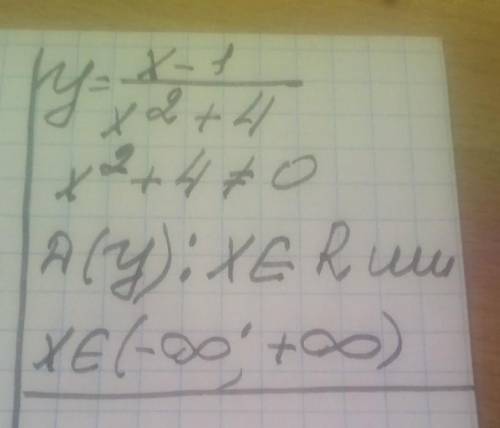 y = \frac{x-1}{x^2+4}
x^2+4≠0
Д(y): x∈R или
x∈(-∞; +∞)